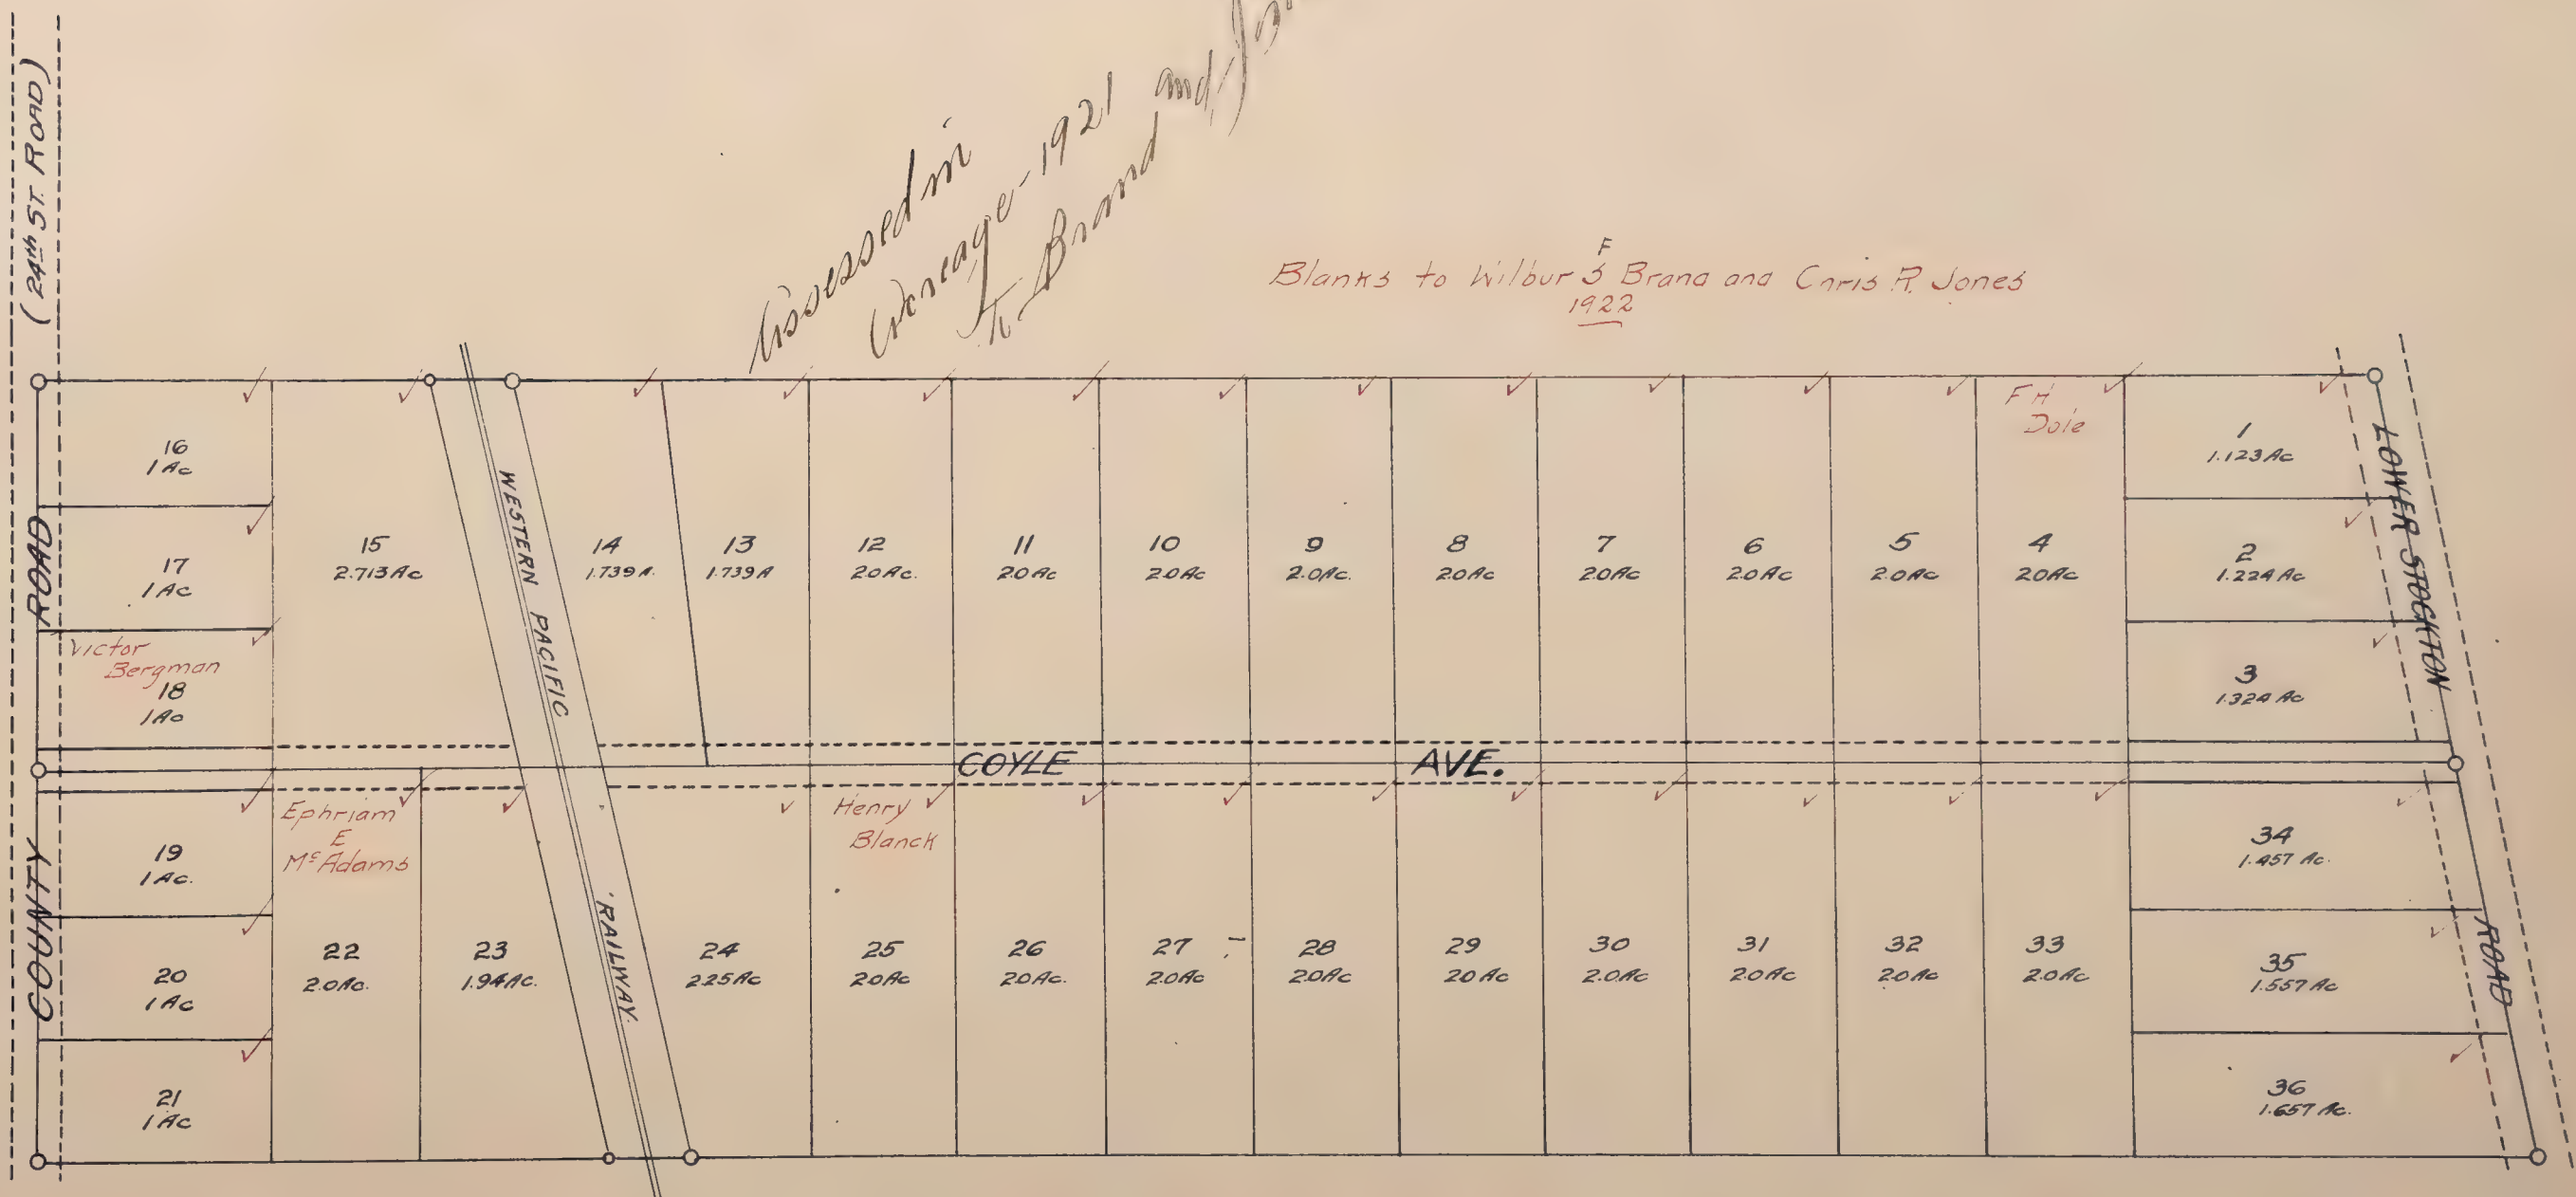 ( 24th ST. ROAD )
Assessed in
Acreage - 1921
To Brand and
F
Blanks to Wilbur S Brand and Chris R. Jones
1922
16
1 Ac
17
1 Ac
Victor
Bergman
18
1 Ac
15
2.713 Ac
WESTERN PACIFIC RAILWAY.
14
1.739 A.
13
1.739 A
12
2.0 Ac.
11
2.0 Ac
10
2.0 Ac
9
2.0 Ac.
8
2.0 Ac
7
2.0 Ac
6
2.0 Ac
5
2.0 Ac
F H
Dole
4
2.0 Ac
1
1.123 Ac
2
1.224 Ac
3
1.324 Ac
LOWER STOCKTON ROAD
COUNTY ROAD
COYLE AVE.
19
1 Ac.
20
1 Ac
21
1 Ac
Ephriam
E
McAdams
22
2.0 Ac.
23
1.94 Ac.
24
2.25 Ac
Henry
Blanck
25
2.0 Ac
26
2.0 Ac.
27
2.0 Ac
28
2.0 Ac
29
2.0 Ac
30
2.0 Ac
31
2.0 Ac
32
2.0 Ac
33
2.0 Ac
34
1.457 Ac.
35
1.557 Ac
36
1.657 Ac.